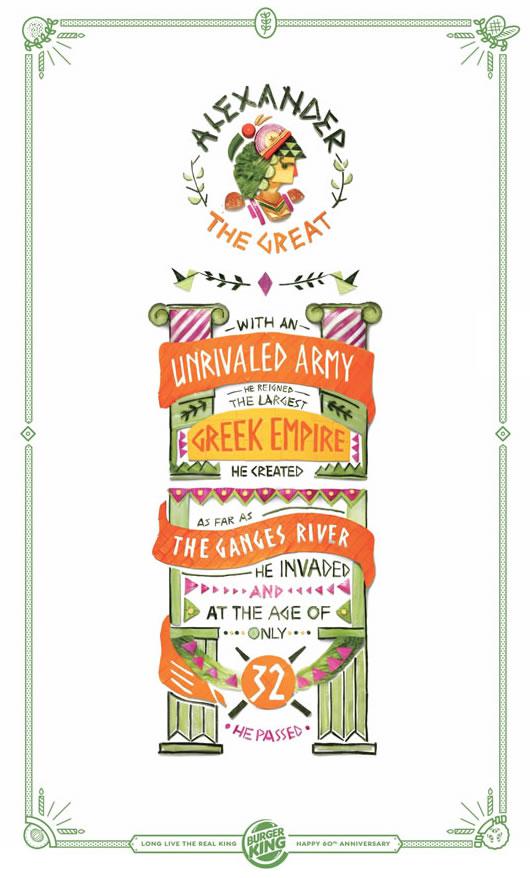 ALEXANDER
THE GREAT
WITH AN
UNRIVALED ARMY
HE REIGNED
THE LARGEST
GREEK EMPIRE
HE CREATED
AS FAR AS
THE GANGES RIVER
HE INVADED
AND
AT THE AGE OF
ONLY
32
HE PASSED
LONG LIVE THE REAL KING
BURGER
KING
HAPPY 60TH ANNIVERSARY